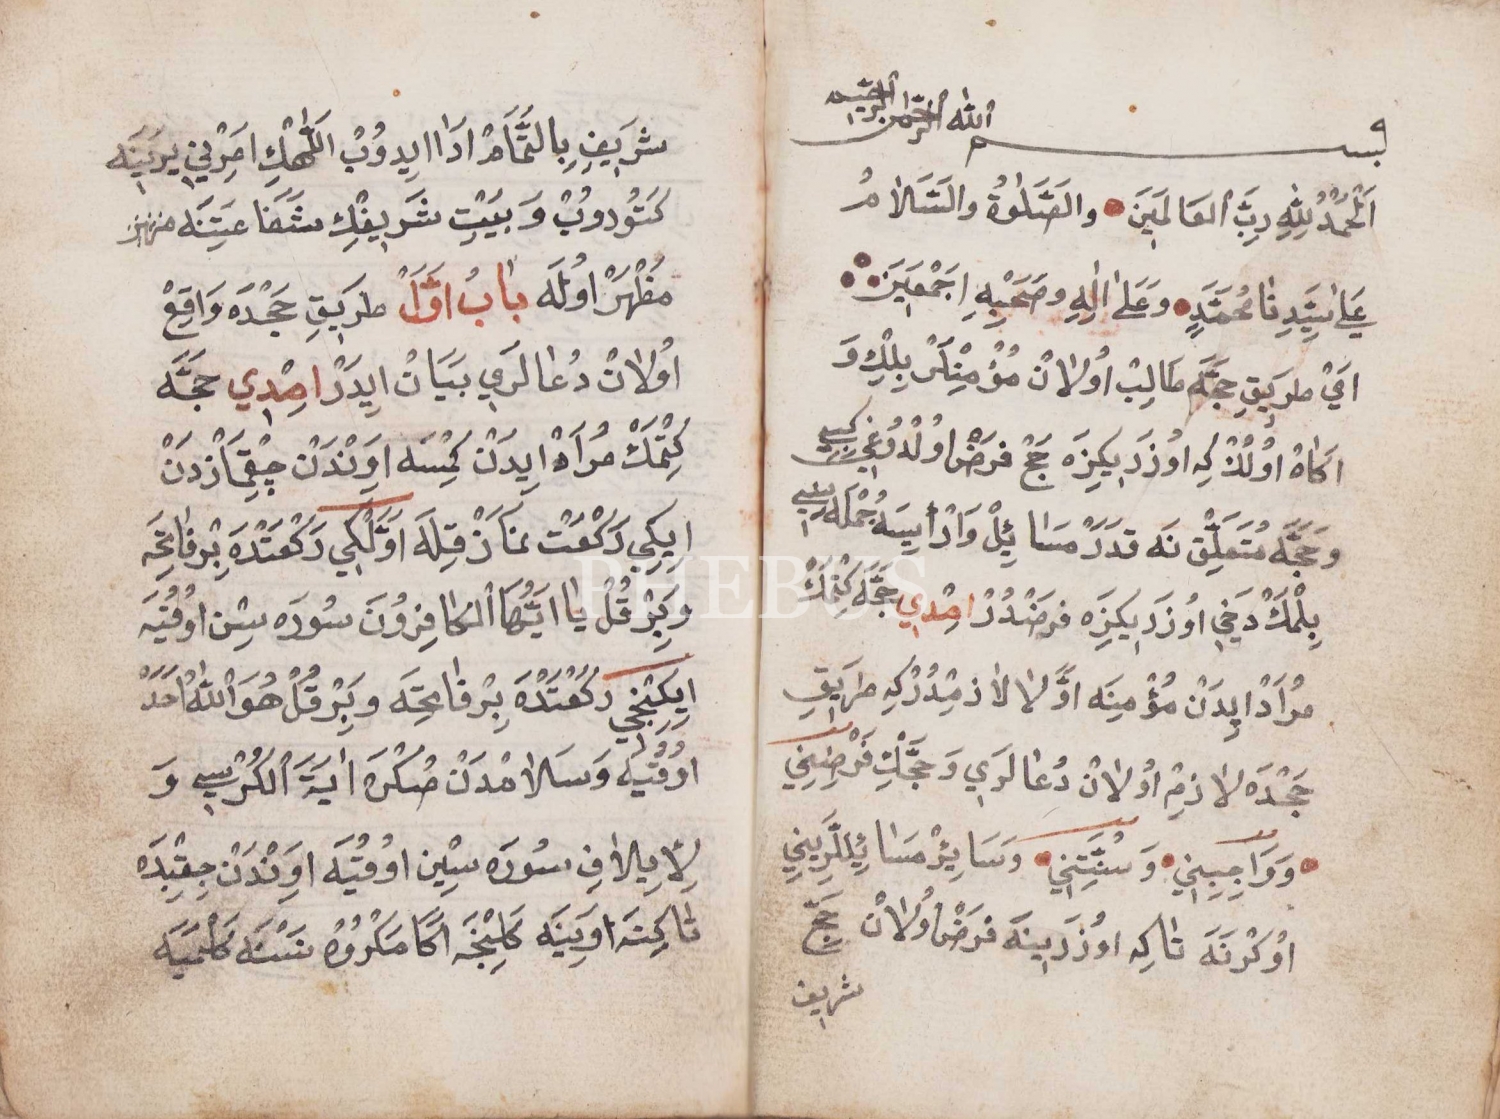 بسم الله الرحمن الرحيم
اَلْحَمْدُ لِلّٰهِ رَبِّ الْعَالَمَينَ والصَّلٰوةُ والسَّلَامُ
عَلىٰ سَيِّدِنَا مُحَمَّدٍ وَعَلىٰ اٰلِهِ وصَحْبِهِ اِجْمَعَينَ
اى طرَيقِ حجَّه طالِبْ اُولَانْ مُؤْمِنْلَرْ بِلِكْ وَ
اكَاهْ اوُلُكْ كِه اوُزَرِيكِزَه حَجْ فرَضْ اوُلْدُوغِى كِبِى
وَحَجَّه مُتَعَلِّقْ نَه قدَرْ مَسَائِلْ وَارْ اِيسَه جُمْلَه سِنِى
بِلْمَكْ دَخِى اوُزَرِيكِزَه فرَضْدُرْ امِدْي حَجَّه كِتْمَكْ
مُرَادْ اِيدَنْ مُؤْمِنَه اوَّلَا لَازمْدُرْكِه طرَيقِ
حَجْدَه لَازِمْ اوُلَانْ دُعَالَرِي وَحَجِّكْ فَرْضِينِي
وَوَاجِبِينِي وَسُنَّتِينِي وَسَائِرْ مَسَائِللَّرِينِي
اوُكْرَنَه تَاكِه اوُزَرِينَه فَرَضْ اوُلَانْ حَجّ
شريف
شَرَيفِ بِالتَّمَامْ اَدَا اِيدُوبْ اَللّٰهِكْ اَمِرْنِي يَرِينَه
كَتُورُوبْ وَبَيْتِ شَرَيفِكْ شَفَاعَتِنَه
مَظْهَرْ اوُلَه بَابُ اَوَّلْ طرَيقِ حَجْدَه وَاقِعْ
اوُلَانْ دُعَالَرِي بَيَانْ اِيدَرْ امِدْي حَجَّه
كِتْمَكْ مُرَادْ اِيدَنْ كِمْسَه اوَندَنْ چِقْمَازدَنْ
اِيكِي رَكْعَتْ نمَازْ قِلَه اَوَّلْكِي رَكْعَتْدَه بِرْ فَاتِحَه
وَبِرْ قُلْ يَا اَيُّهَا الْكَافِرُونَ سُورَه سِنْ اوُقُيَه
اِيكِنْجِي رَكْعَتْدَه بِرْ فَاتِحَه وَبِرْ قُلْ هُوَ اللهُ اَحَدْ
اوُقُيَه وَسَلَامْدَنْ صُكْرَه اٰيَةَ الْكُرْسِي وَ
لِاِيلَافِ سُورَه سِينْ اوُقُيَه اوَنْدَنْ چِقِيْدَه
تَاكِتَه اوَينَه كَلِنْجَه اكَا مَكْرُوهْ نَسْنَه كَلْمَيَه